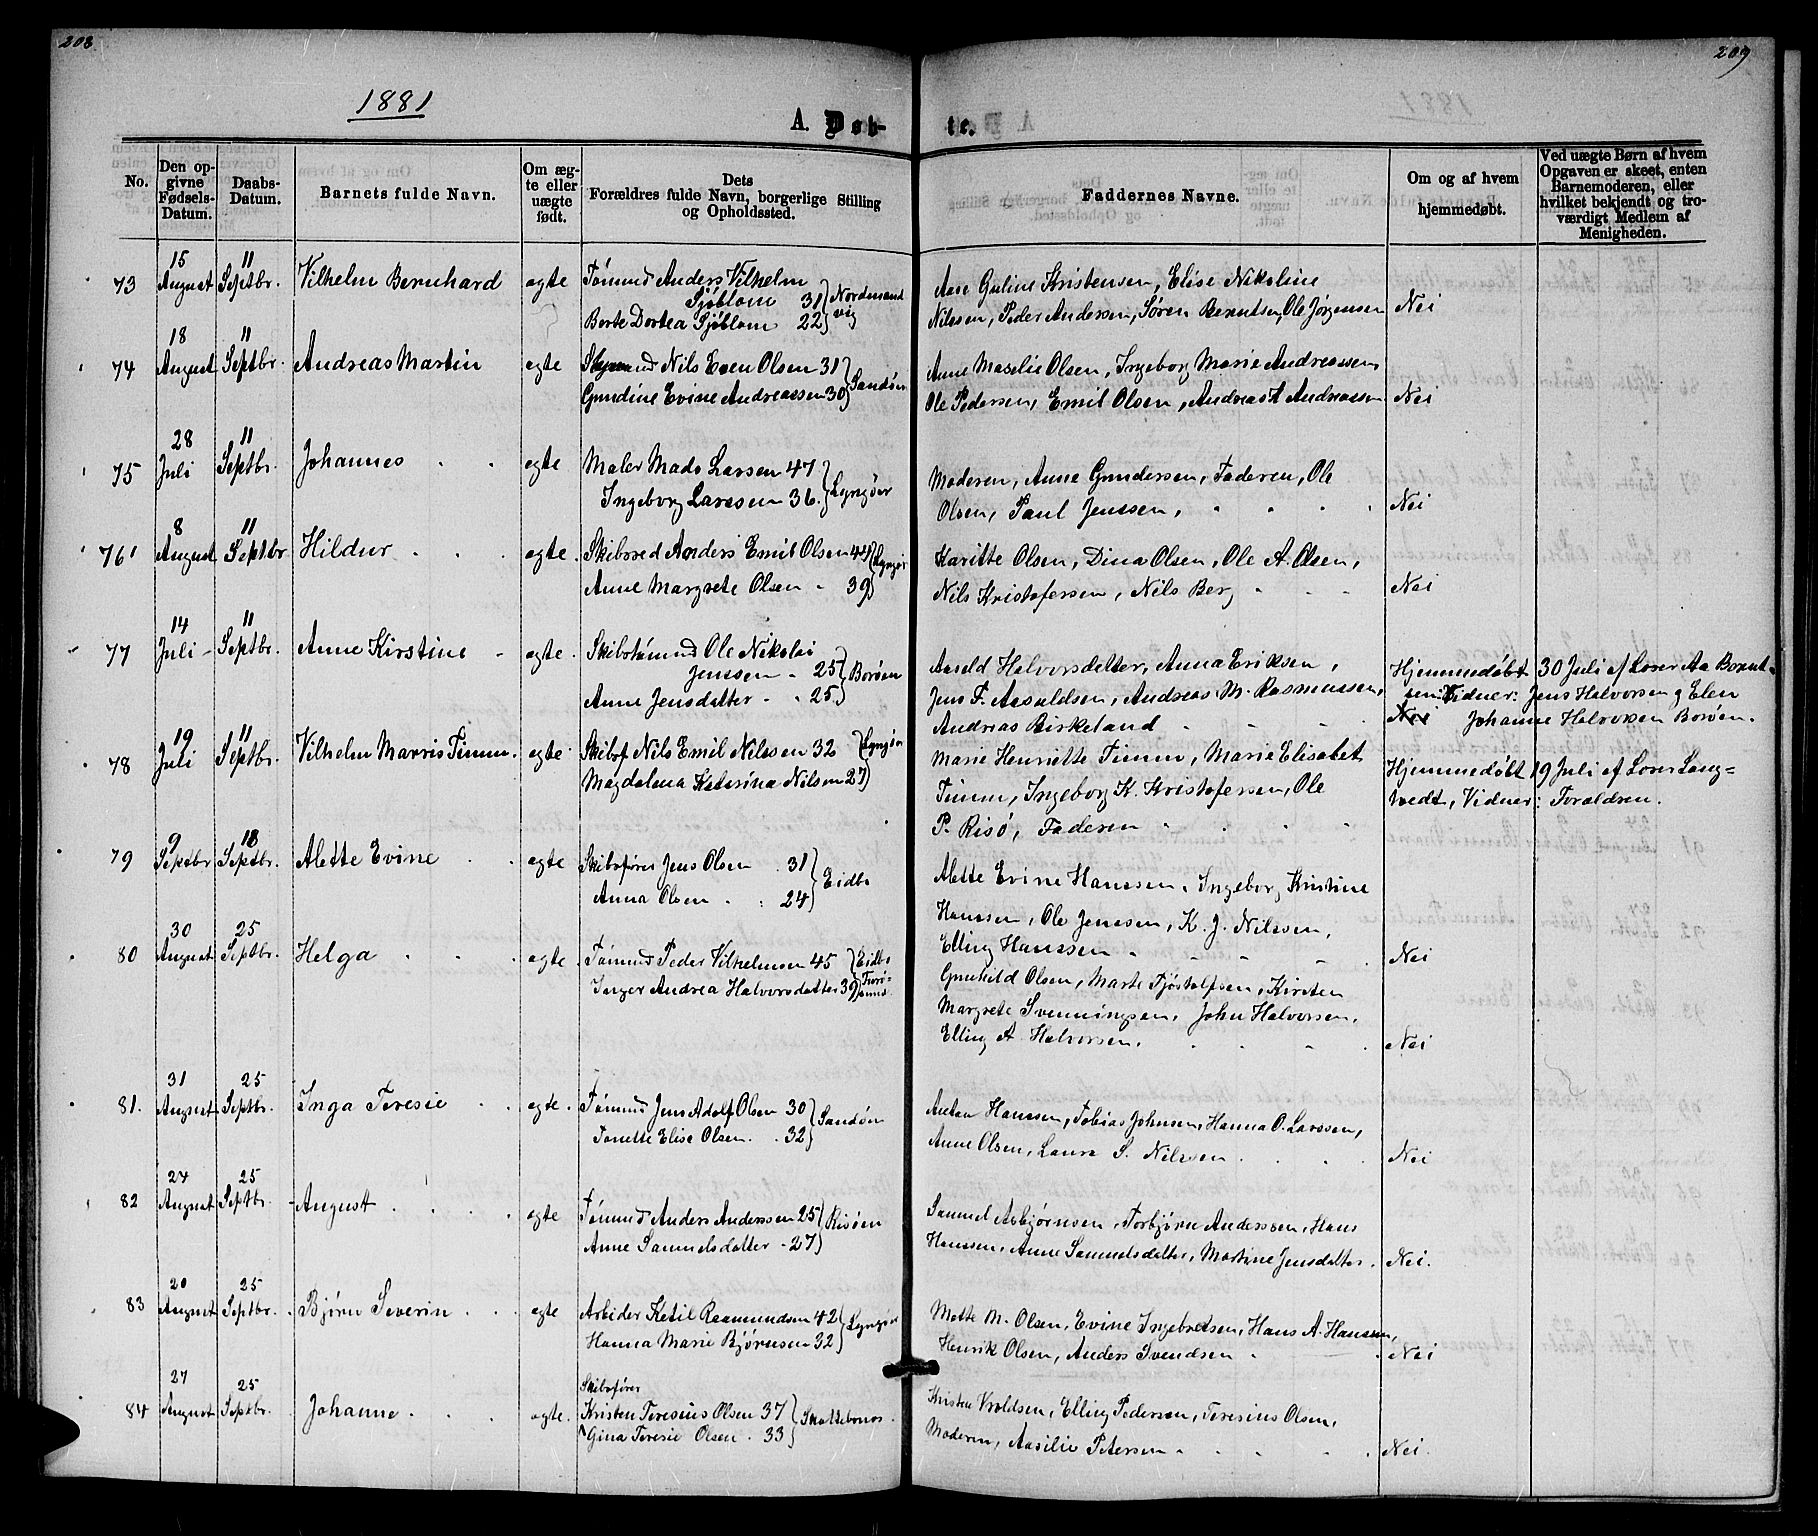 208
209
1881
A. Døb-
te.
No.
Den op-
givne
Fødsels-
Datum.
Daabs-
Datum.
Barnets fulde Navn.
Om æg-
te eller
uægte
født.
Dets
Forældres fulde Navn, borgerlige Stilling
og Opholdssted.
Faddernes Navne.
Om og af hvem
hjemmedøbt.
Ved uægte Børn af hvem
Opgaven er skeet, enten
Barnemoderen, eller
hvilket bekjendt og tro-
værdigt Medlem af
Menigheden.
73 15 August 11 Septbr. Vilhelm Bernhard egte Tømmd Anders Vilhelm
Sjöblom 31 Nordensand
Borte Dortea Sjöblom 22 vig
Aase Guline Kristensen, Elise Nikoline
Nilssen, Peder Anderssen, Søren Berntsen, Ole Jørgensen Nei
74 18 August 11 Septbr. Andreas Martin egte Nils Even Olsen 31 Sandøen
Gundine Evine Andreassen 30
Anne Maselie Olsen, Ingeborg Marie Andreassen
Ole Pedersen, Emil Olsen, Andreas A Andreassen Nei
75 28 Juli 11 Septbr. Johannes egte Maler Mads Larssen 47 Lyngør
Ingeborg Larssen 36.
Moderen, Anne Gundersen, Faderen, Ole
Olsen, Paul Jenssen, Nei
76 8 August 11 Septbr Hildur egte. Skibsred Anders Emil Olsen 42 Lyngør
Anne Margrete Olsen - 39
Karitte Olsen, Dina Olsen, Ole A. Olsen,
Nils Kristofersen, Nils Berg Nei
77 14 Juli 11 Septbr. Anne Kirstine egte. Skibstømmd Ole Nikolai
Jenssen - 25 Borøen
Anne Jensdatter - 25.
Aasild Halvorsdatter, Anna Eriksen,
Jens F. Aasuldsen, Andreas M. Rasmussen,
Andreas Birkeland
Hjemmedøbt 30 Juli af Lærer Aa Bernt-
sen. Vidner: Jens Halvorsen og Elen
Nei Johanne Halvorsen Borøen.
78 19 Juli 11 Septbr. Vilhelm Marris Timm. egte. Skibsf Nils Emil Nilssen 32 Lyngør
Magdalena Katerina Nilsen 27
Marie Henriette Timm, Marie Elisabet
Timm, Ingeborg K. Kristofersen, Ole
P. Risø, Faderen
Hjemmedøbt 19 Juli af Lærer Lang-
tvedt, Vidner: Forældren.
79 9 Septbr 18 Septbr. Alette Evine egte Skibsfører Jens Olsen 31 Eidbo
Anna Olsen 24
Alette Evine Hanssen, Ingeborg Kristine
Hanssen, Ole Jenssen, K. J. Nilssen,
Elling Hanssen Nei
80 30 August 25 Septbr. Helga egte. Tømmd Peder Vilhelmsen 45 Eidbo
Inger Andrea Halvorsdatter 39
Gunhild Olsen, Marte Tjøstolfsen, Kirsten
Margrete Svenningsen, John Halvorsen,
Elling A. Halvorsen. Nei
81. 31 August 25 Septbr. Inga Teresie egte. Tømmd Jens Adolf Olsen 30 Sandøen
Tonette Elise Olsen. 32
Anton Hanssen, Tobias Johnsen, Hanna O. Larssen,
Anne Olsen, Laura S. Nilssen Nei
82 24 August 25 Septbr. August egte Tømmd Anders Anderssen 25 Risøen
Anne Samuelsdatter - 27
Samuel Asbjørnsen, Torbjørn Anderssen, Hans
Hanssen, Anne Samuelsdatter, Martine Jensdatter. Nei.
83 20 August 25 Septbr. Bjørn Severin egte Arbider Ketil Rasmundsen 42 Lyngør
Hanna Marie Bjørnsen 32
Mette M. Olsen, Evine Ingebretsen, Hans A. Hanssen,
Henrik Olsen, Anders Svendsen Nei
84 27 August 25 Septbr. Johanne egte. Skibsfører
Kristen Teresius Olsen 37
Gina Teresie Olsen. 33
Kristen Vroldsen, Elling Pedersen, Teresius Olsen,
Moderen, Aasilie Petersen Nei.